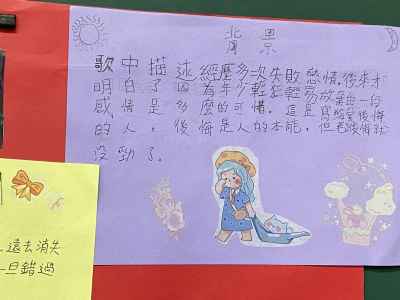 背景
歌中描述經歷多次失敗戀情,後來才
明白了因為年少輕狂輕易放棄一段
感情是多麼的可惜。這是寫給愛後悔
的人,後悔是人的本能,但老後悔就
沒勁了。
遠去消失
一旦錯過